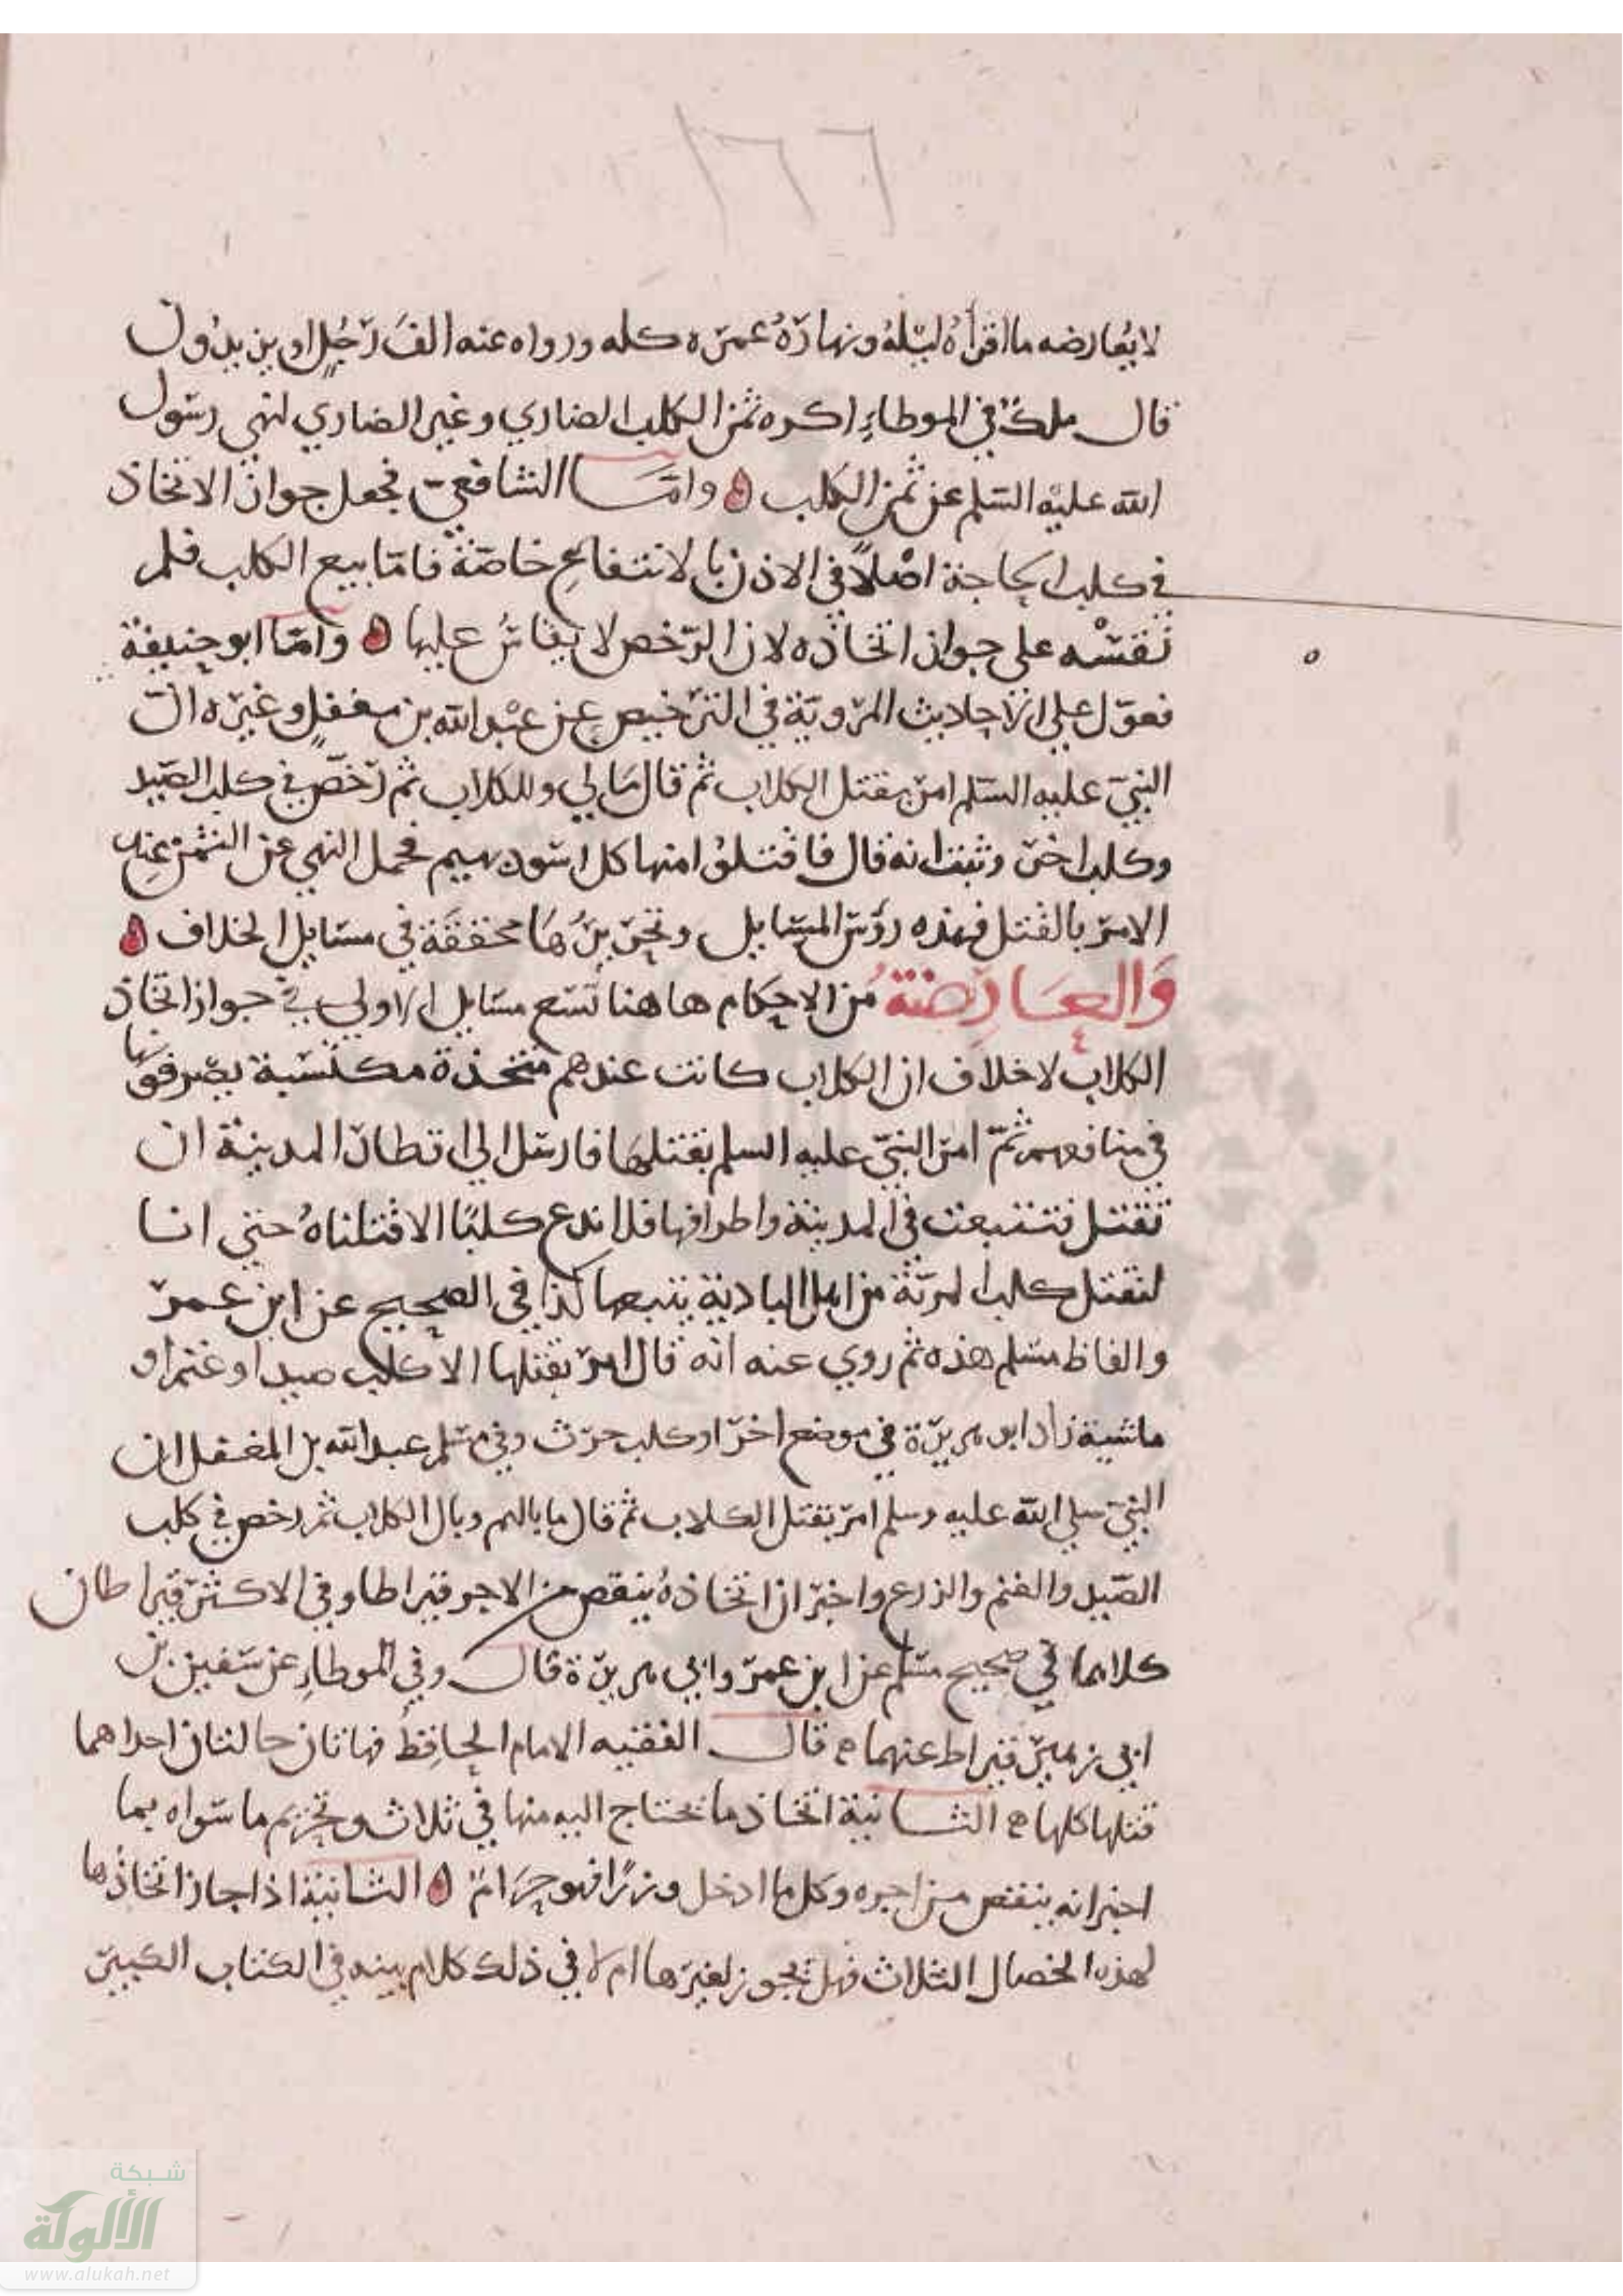 ١٦٦
لا يعارضه ما اقرأه ليله ونهاره عمره كله ورواه عنه الف رجل او يزيدون
قال ملك في الموطاء اكره ثمن الكلب الضاري وغير الضاري لنهي رسول
الله عليه السلم عن ثمن الكلب واما الشافعي فجعل جواز الاتخاذ
في كلب الحاجة اصلا في الاذن بالانتفاع خاصة فاما بيع الكلب فلم
نقسه على جواز اتخاذه لان الرخص لا يقاس عليها واما ابو حنيفة
فعول على الاحاديث المروية في الترخيص عن عبد الله بن مغفل وغيره ان
النبي عليه السلم امر بقتل الكلاب ثم قال مالي وللكلاب ثم رخص في كلب الصيد
وكلب اخر وثبت انه قال فاقتلوا منها كل اسود بهيم فحمل النهي عن الثمن عند
الامر بالقتل فهذه رؤس المسايل ونحن بينها محققة في مسايل الخلاف
والعارضة من الاحكام هاهنا تسع مسايل الاولى في جواز اتخاذ
الكلاب لا خلاف ان الكلاب كانت عندهم متخذة مكتسبة يصرفونها
في منافعهم ثم امر النبي عليه السلم بقتلها فارسل الى اقطار المدينة ان
تقتل فتتبعت في المدينة واطرافها فلا ندع كلبا الا قتلناه حتى انا
لنقتل كلب المرية من اهل البادية يتبعها كذا في الصحيح عن ابن عمر
والفاظ مسلم هذه ثم روي عنه انه قال امر بقتلها الا كلب صيد او غنم او
ماشية زاد ابو هريرة في موضع اخر او كلب حرث وفي مسلم عبد الله بن المغفل ان
النبي صلى الله عليه وسلم امر بقتل الكلاب ثم قال ما بالهم وبال الكلاب ثم رخص في كلب
الصيد والغنم والزرع واخبر ان اتخاذه ينقص من الاجر قيراطا وفي الاكثر قيراطان
كلاهما في صحيح مسلم عن ابن عمر وابي هريرة قال وفي الموطاء عن سفين بن
ابي زهير قيراط عنهما قال الفقيه الامام الحافظ فهاتان حالتان احداهما
قتلها كلها الثانية اتخاذ ما يحتاج اليه منها في ثلاث وتحريم ما سواه بما
اخبر انه ينقص من اجره وكل ما ادخل وزرا فهو حرام الثانية اذا جاز اتخاذها
لهذه الخصال الثلاث فهل يجوز لغيرها ام لا في ذلك كلام بينه في الكتاب الكبير
شبكة
الألوكة
www.alukah.net